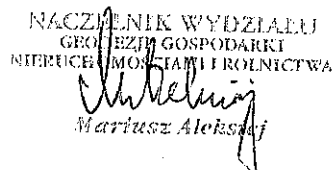 NACZELNIK WYDZIAŁU
GEODEZJI GOSPODARKI
NIERUCHOMOŚCIAMI I ROLNICTWA
Mariusz Aleksiej